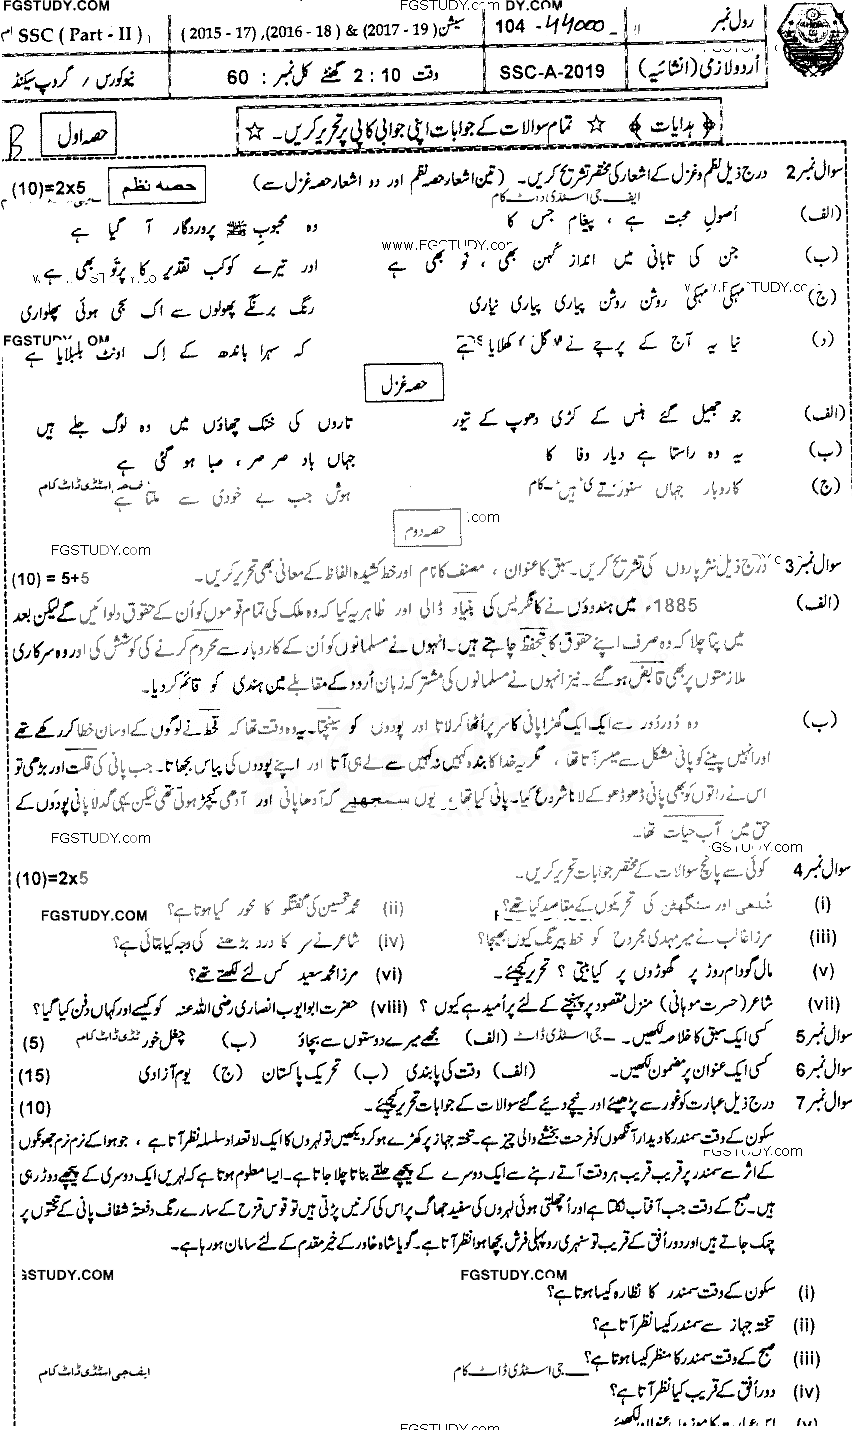 FGSTUDY.COM FGSTUDY.com DY.COM
رول نمبر 104 -44000 سیشن (2015 - 17), (2016 - 18) & (2017 - 19) SSC ( Part - II )
اُردو لازمی (انشائیہ) SSC-A-2019 وقت 2 : 10 گھنٹے کل نمبر : 60 نیو کورس / گروپ سیکنڈ
﴿ ہدایات ﴾ ☆ تمام سوالات کے جوابات اپنی جوابی کاپی پر تحریر کریں۔ ☆ حصہ اول B
سوال نمبر 2 درج ذیل نظم و غزل کے اشعار کی مختصر تشریح کریں۔ (تین اشعار حصہ نظم اور دو اشعار حصہ غزل سے) حصہ نظم (10)=2x5
ایف جی اسٹڈی ڈاٹ کام
(الف) اصولِ محبت ہے ، پیغام جس کا وہ محبوبِ ﷺ پروردگار آ گیا ہے
www.FGSTUDY.com
(ب) جن کی تابانی میں اندازِ کُہن بھی ، نو بھی ہے اور تیرے کوکبِ تقدیر کا پرتَو بھی ہے
(ج) مہکی مہکی روشن روشن پیاری پیاری نیاری رنگ برنگے پھولوں سے اک سجی ہوئی پھلواری
FGSTUDY OM
(د) نیا یہ آج کے پرچے نے گُل کھلایا ہے کہ سہرا باندھ کے اِک اونٹ بلبلایا ہے
حصہ غزل
(الف) جو جھیل گئے ہنس کے کڑی دھوپ کے تیور تاروں کی خنک چھاؤں میں وہ لوگ جلے ہیں
(ب) یہ وہ راستا ہے دیارِ وفا کا جہاں بادِ صرصر ، صبا ہو گئی ہے
(ج) کاروبارِ جہاں سنورتے ہیں ہوش جب بے خودی سے ملتا ہے
.com
حصہ دوم
FGSTUDY.com
سوال نمبر 3 درج ذیل نثر پاروں کی تشریح کریں۔ سبق کا عنوان ، مصنف کا نام اور خط کشیدہ الفاظ کے معانی بھی تحریر کریں۔ (10) = 5+5
(الف) 1885ء میں ہندوؤں نے کانگریس کی بنیاد ڈالی اور ظاہر یہ کیا کہ وہ ملک کی تمام قوموں کو اُن کے حقوق دلوائیں گے لیکن بعد
میں پتا چلا کہ وہ صرف اپنے حقوق کا تحفظ چاہتے ہیں۔ انھوں نے مسلمانوں کو اُن کے کاروبار سے محروم کرنے کی کوشش کی اور وہ سرکاری
ملازمتوں پر بھی قابض ہو گئے۔ نیز انھوں نے مسلمانوں کی مشترکہ زبان اُردو کے مقابلے میں ہندی کو قائم کر دیا۔
(ب) وہ دُور دُور سے ایک ایک گھڑا پانی کا سر پر اُٹھا کر لاتا اور پودوں کو سینچتا۔ یہ وہ وقت تھا کہ قحط نے لوگوں کے اوسان خطا کر رکھے تھے
اور انہیں پینے کو پانی مشکل سے میسر آتا تھا ، مگر یہ خدا کا بندہ کہیں نہ کہیں سے لے ہی آتا اور اپنے پودوں کی پیاس بجھاتا۔ جب پانی کی قلت اور بڑھی تو
اس نے راتوں کو بھی پانی ڈھو ڈھو کے لانا شروع کیا۔ پانی کیا تھا یوں سمجھیے کہ آدھا پانی اور آدھی کیچڑ ہوتی تھی لیکن یہی گدلا پانی پودوں کے
حق میں آبِ حیات تھا۔
FGSTUDY.com GSTUDY.COM
سوال نمبر 4 کوئی سے پانچ سوالات کے مختصر جوابات تحریر کریں۔ (10)=2x5
(i) شُدھی اور سنگھٹن کی تحریکوں کے مقاصد کیا تھے؟ (ii) محمد تحسین کی گفتگو کا محور کیا ہوتا ہے؟
FGSTUDY.COM
(iii) مرزا غالب نے میر مہدی مجروح کو خط بیرنگ کیوں بھیجا؟ (iv) شاعر نے سر کا درد بڑھنے کی وجہ کیا بتائی ہے؟
(v) مال گودام روڈ پر گھوڑوں پر کیا بیتی ؟ تحریر کیجیے۔ (vi) مرزا محمد سعید کس لئے لکھتے تھے؟
(vii) شاعر (حسرت موہانی) منزلِ مقصود پر پہنچنے کے لئے پر امید ہے کیوں ؟ (viii) حضرت ابو ایوب انصاری رضی اللہ عنہ کو کیسے اور کہاں دفن کیا گیا؟
سوال نمبر 5 کسی ایک سبق کا خلاصہ لکھیں۔ (الف) مجھے میرے دوستوں سے بچاؤ (ب) چغل خور (5)
سوال نمبر 6 کسی ایک عنوان پر مضمون لکھیں۔ (الف) وقت کی پابندی (ب) تحریک پاکستان (ج) یومِ آزادی (15)
سوال نمبر 7 درج ذیل عبارت کو غور سے پڑھیئے اور نیچے دیئے گئے سوالات کے جوابات تحریر کیجئے۔ (10)
سکون کے وقت سمندر کا دیدار آنکھوں کو فرحت بخشنے والی چیز ہے۔ تختہ جہاز پر کھڑے ہو کر دیکھیں تو لہروں کا ایک لاتعداد سلسلہ نظر آتا ہے ، جو ہوا کے نرم نرم جھونکوں
FGSTUDY.COM
کے اثر سے سمندر پر قریب قریب ہر وقت آتے رہنے سے ایک دوسرے کے پیچھے حلقے بناتا چلا جاتا ہے۔ ایسا معلوم ہوتا ہے کہ لہریں ایک دوسری کے پیچھے دوڑ رہی
ہیں۔ صبح کے وقت جب آفتاب نکلتا ہے اور اُچھلتی ہوئی لہروں کی سفید جھاگ پر اس کی کرنیں پڑتی ہیں تو قوس قزح کے سارے رنگ دفعتہً شفاف پانی کے تختوں پر
چمک جاتے ہیں اور دور اُفق کے قریب تو سنہری روپہلی فرش بچھا ہوا نظر آتا ہے۔ گویا شاہ خاور کے خیر مقدم کے لئے سامان ہو رہا ہے۔
GSTUDY.COM FGSTUDY.COM
(i) سکون کے وقت سمندر کا نظارہ کیسا ہوتا ہے؟
(ii) تختہ جہاز سے سمندر کیسا نظر آتا ہے؟
(iii) صبح کے وقت سمندر کا منظر کیسا ہوتا ہے؟
جی اسٹڈی ڈاٹ کام ایف جی اسٹڈی ڈاٹ کام
(iv) دور اُفق کے قریب کیا نظر آتا ہے؟
FGSTUDY.COM